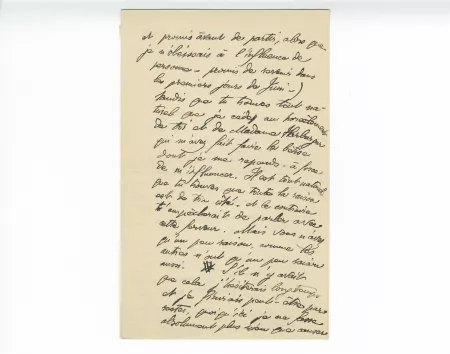 et promis avant de partir, alors que
je n'obéissais à l'influence de
personne - promis de revenir dans
les premiers jours de Juin -)
tandis que tu trouves tout na-
turel que je cède au
de toi et de Madame
qui m'avez fait faire la bêtise
dont je me repends - à force
de m'influencer. Il est tout naturel
que tu trouves que toute la raison
est de ton côté - et le contraire
t'empêcherait de parler avec
cette ferveur. Mais vous n'avez
qu'un peu raison, comme les
autres n'ont qu'un peu raison
aussi. S'il n'y avait
que cela j'hésiterais longtemps
et je finirais peut-être par
rester, quoiqu'ici je ne fasse
absolument plus rien que